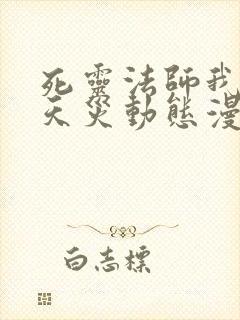 死靈法師我
天災動態漫
白志標